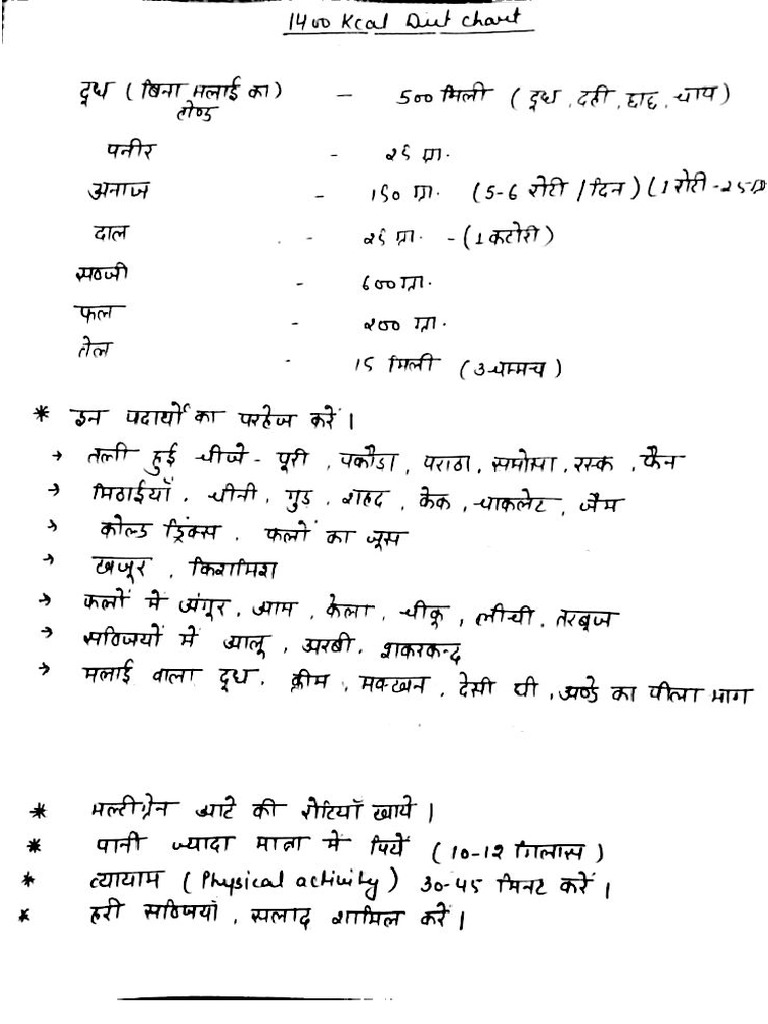 1400 Kcal Diet chart
दूध (बिना मलाई का) - 500 मिली (दूध, दही, छाछ, चाय)
टोण्ड
पनीर - 25 ग्रा.
अनाज - 150 ग्रा. (5-6 रोटी / दिन) (1 रोटी - 25 ग्रा
दाल - 25 ग्रा. - (1 कटोरी)
सब्जी - 600 ग्रा.
फल - 200 ग्रा.
तेल - 15 मिली (3 चम्मच)
* इन पदार्थो का परहेज करें।
→ तली हुई चीजे - पूरी, पकौडा, पराठा, समोसा, रस्क, फैन
→ मिठाईयाँ, चीनी, गुड़, शहद, केक, चाकलेट, जैम
→ कोल्ड ड्रिंक्स, फलों का जूस
→ खजूर, किशमिश
→ फलों में अंगूर, आम, केला, चीकू, लीची, तरबूज
→ सब्जियों में आलू, अरबी, शकरकन्द
→ मलाई वाला दूध, क्रीम, मक्खन, देसी घी, अण्डे का पीला भाग
* मल्टीग्रेन आटे की रोटियाँ खाये।
* पानी ज्यादा मात्रा में पियें (10-12 गिलास)
* व्यायाम (Physical activity) 30-45 मिनट करें।
* हरी सब्जियां, सलाद शामिल करें।